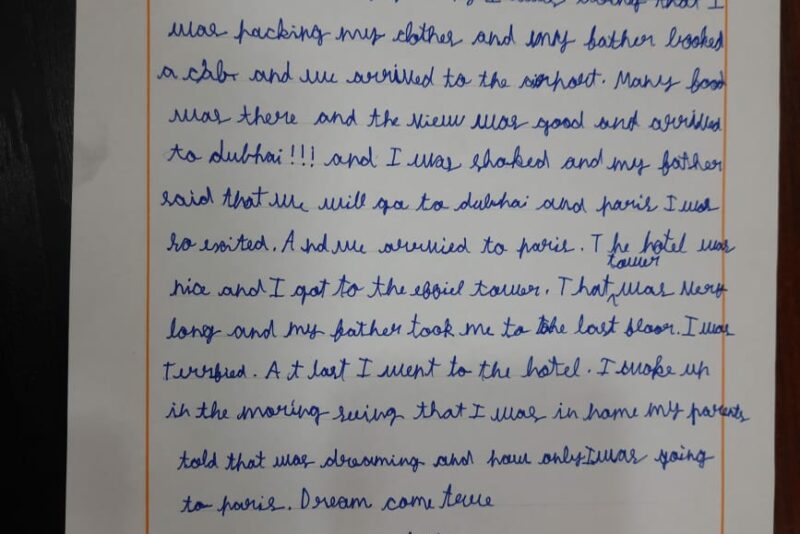 that I
was packing my clothes and my father booked
a cab and we arrived to the airport. Many food
was there and the view was good and arrived
to dubhai!!! and I was shoked and my father
said that we will go to dubhai and paris I was
so exited. And we arrived to paris. The hotel was
nice and I got to the effiel tower. That tower was very
long and my father took me to the last floor. I was
Terrfied. At last I went to the hotel. I woke up
in the moring seeing that I was in home my parents
told that was dreaming and now only I was going
to paris. Dream come true